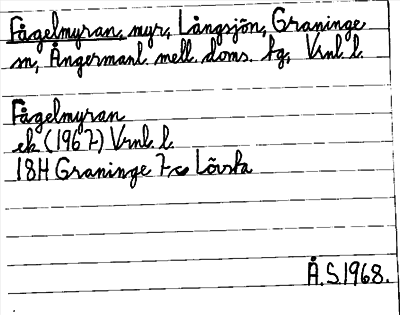 Fågelmyran, myr, Långsjön, Graninge
sn, Ångermanl. mell. doms. fg, Vrnl. l.
Fågelmyran
ek (1967) Vrnl. l.
18H Graninge 7c Lövåsa
Å.S. 1968.